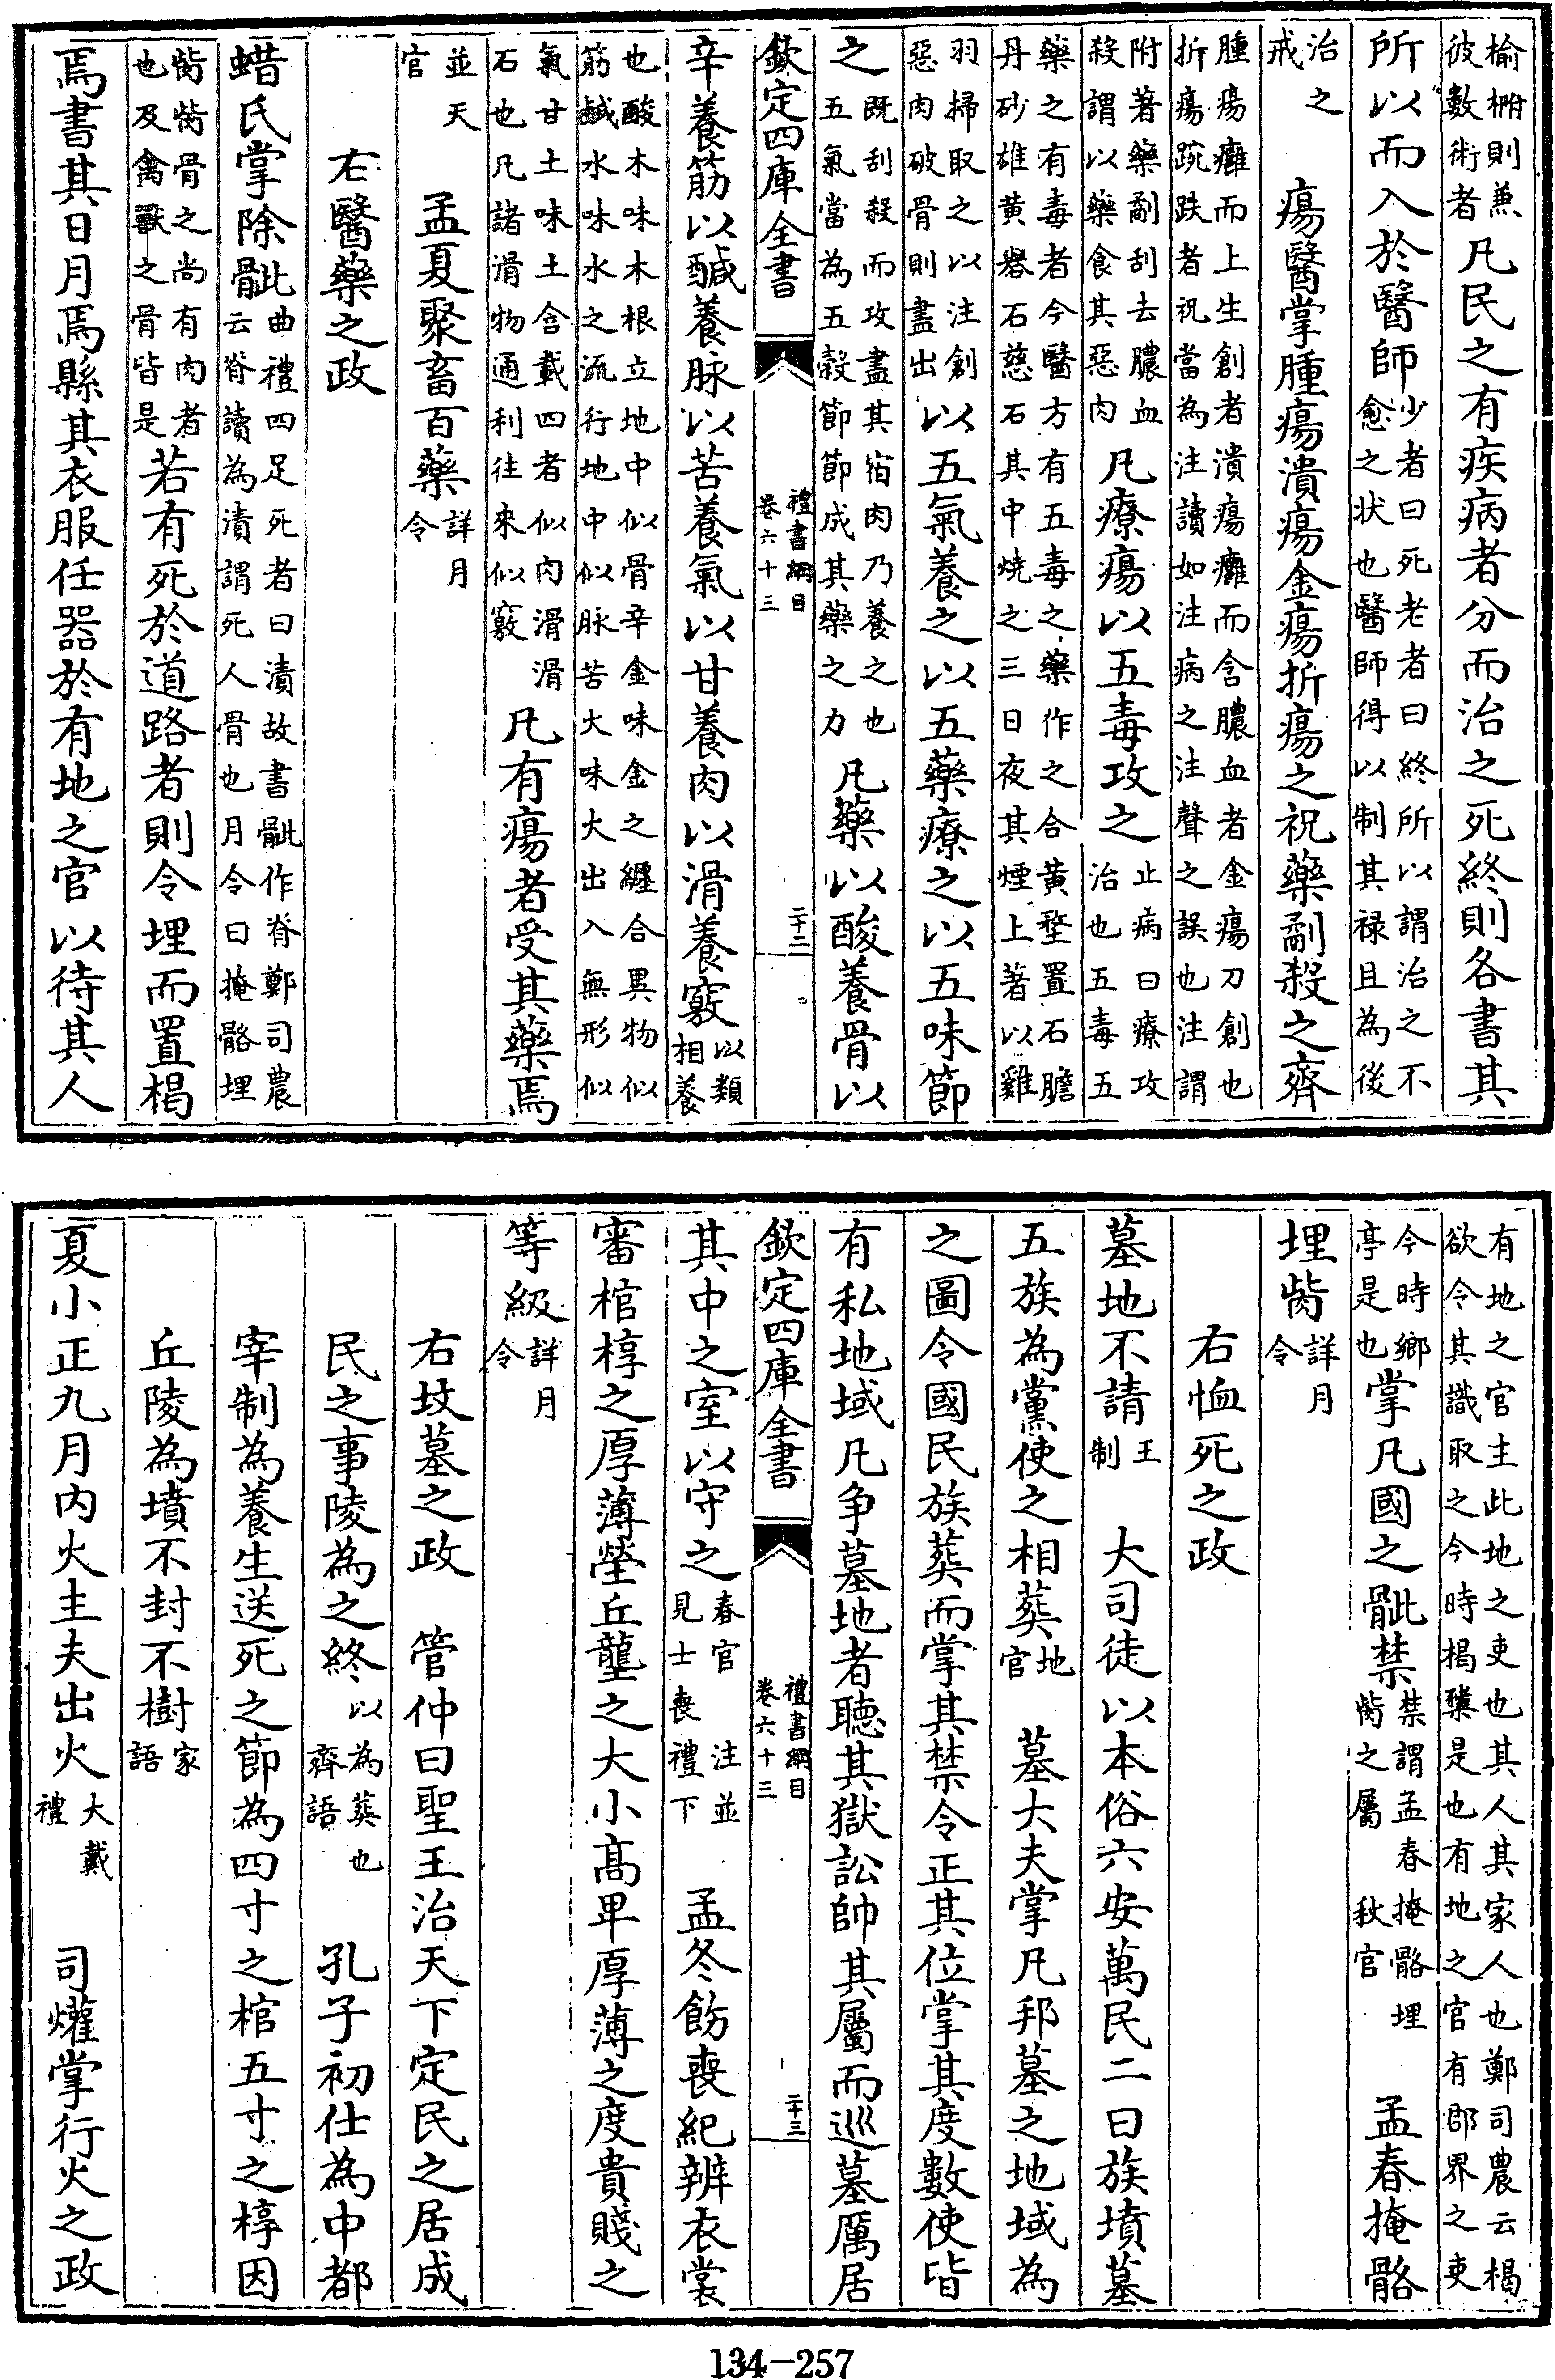 榆柎則兼
彼數術者
凡民之有疾病者分而治之死終則各書其
所以而入於醫師
少者曰死老者曰終所以謂治之不
愈之狀也醫師得以制其祿且為後
治之
戒
瘍醫掌腫瘍潰瘍金瘍折瘍之祝藥劀殺之齊
腫瘍癰而上生創者潰瘍癰而含膿血者金瘍刀創也
折瘍踠跌者祝當為注讀如注病之注聲之誤也注謂
附著藥劀刮去膿血
殺謂以藥食其惡肉
凡療瘍以五毒攻之
止病曰療攻
治也五毒五
藥之有毒者今醫方有五毒之藥作之合黃堥置石膽
丹砂雄黃礜石慈石其中燒之三日夜其煙上著以雞
羽掃取之以注創
惡肉破骨則盡出
以五氣養之以五藥療之以五味節
之
既刮殺而攻盡其宿肉乃養之也
五氣當為五穀節節成其藥之力
凡藥以酸養骨以
欽定四庫全書
禮書綱目
卷六十三
二十二
辛養筋以鹹養脉以苦養氣以甘養肉以滑養竅
以類
相養
也酸木味木根立地中似骨辛金味金之纏合異物似
筋鹹水味水之流行地中似脉苦火味火出入無形似
氣甘土味土含載四者似肉滑滑
石也凡諸滑物通利往來似竅
凡有瘍者受其藥焉
並天
官
孟夏聚畜百藥
詳月
令
右醫藥之政
蜡氏掌除骴
曲禮四足死者曰漬故書骴作脊鄭司農
云脊讀為漬謂死人骨也月令曰掩骼埋
胔胔骨之尚有肉者
也及禽獸之骨皆是
若有死於道路者則令埋而置楬
焉書其日月焉縣其衣服任器於有地之官以待其人
有地之官主此地之吏也其人其家人也鄭司農云楬
欲令其識取之今時楬櫫是也有地之官有郡界之吏
今時鄉
亭是也
掌凡國之骴禁
禁謂孟春掩骼埋
胔之屬 秋官
孟春掩骼
埋胔
詳月
令
右恤死之政
墓地不請
王
制
大司徒以本俗六安萬民二曰族墳墓
五族為黨使之相葬
地
官
墓大夫掌凡邦墓之地域為
之圖令國民族葬而掌其禁令正其位掌其度數使皆
有私地域凡争墓地者聽其獄訟帥其屬而巡墓厲居
欽定四庫全書
禮書綱目
卷六十三
二十三
其中之室以守之
春官 注並
見士喪禮下
孟冬飭喪紀辨衣裳
審棺椁之厚薄塋丘壟之大小高卑厚薄之度貴賤之
等級
詳月
令
右墳墓之政
管仲曰聖王治天下定民之居成
民之事陵為之終
以為葬也
齊語
孔子初仕為中都
宰制為養生送死之節為四寸之棺五寸之椁因
丘陵為墳不封不樹
家
語
夏小正九月内火主夫出火
大戴
禮
司爟掌行火之政
134-257